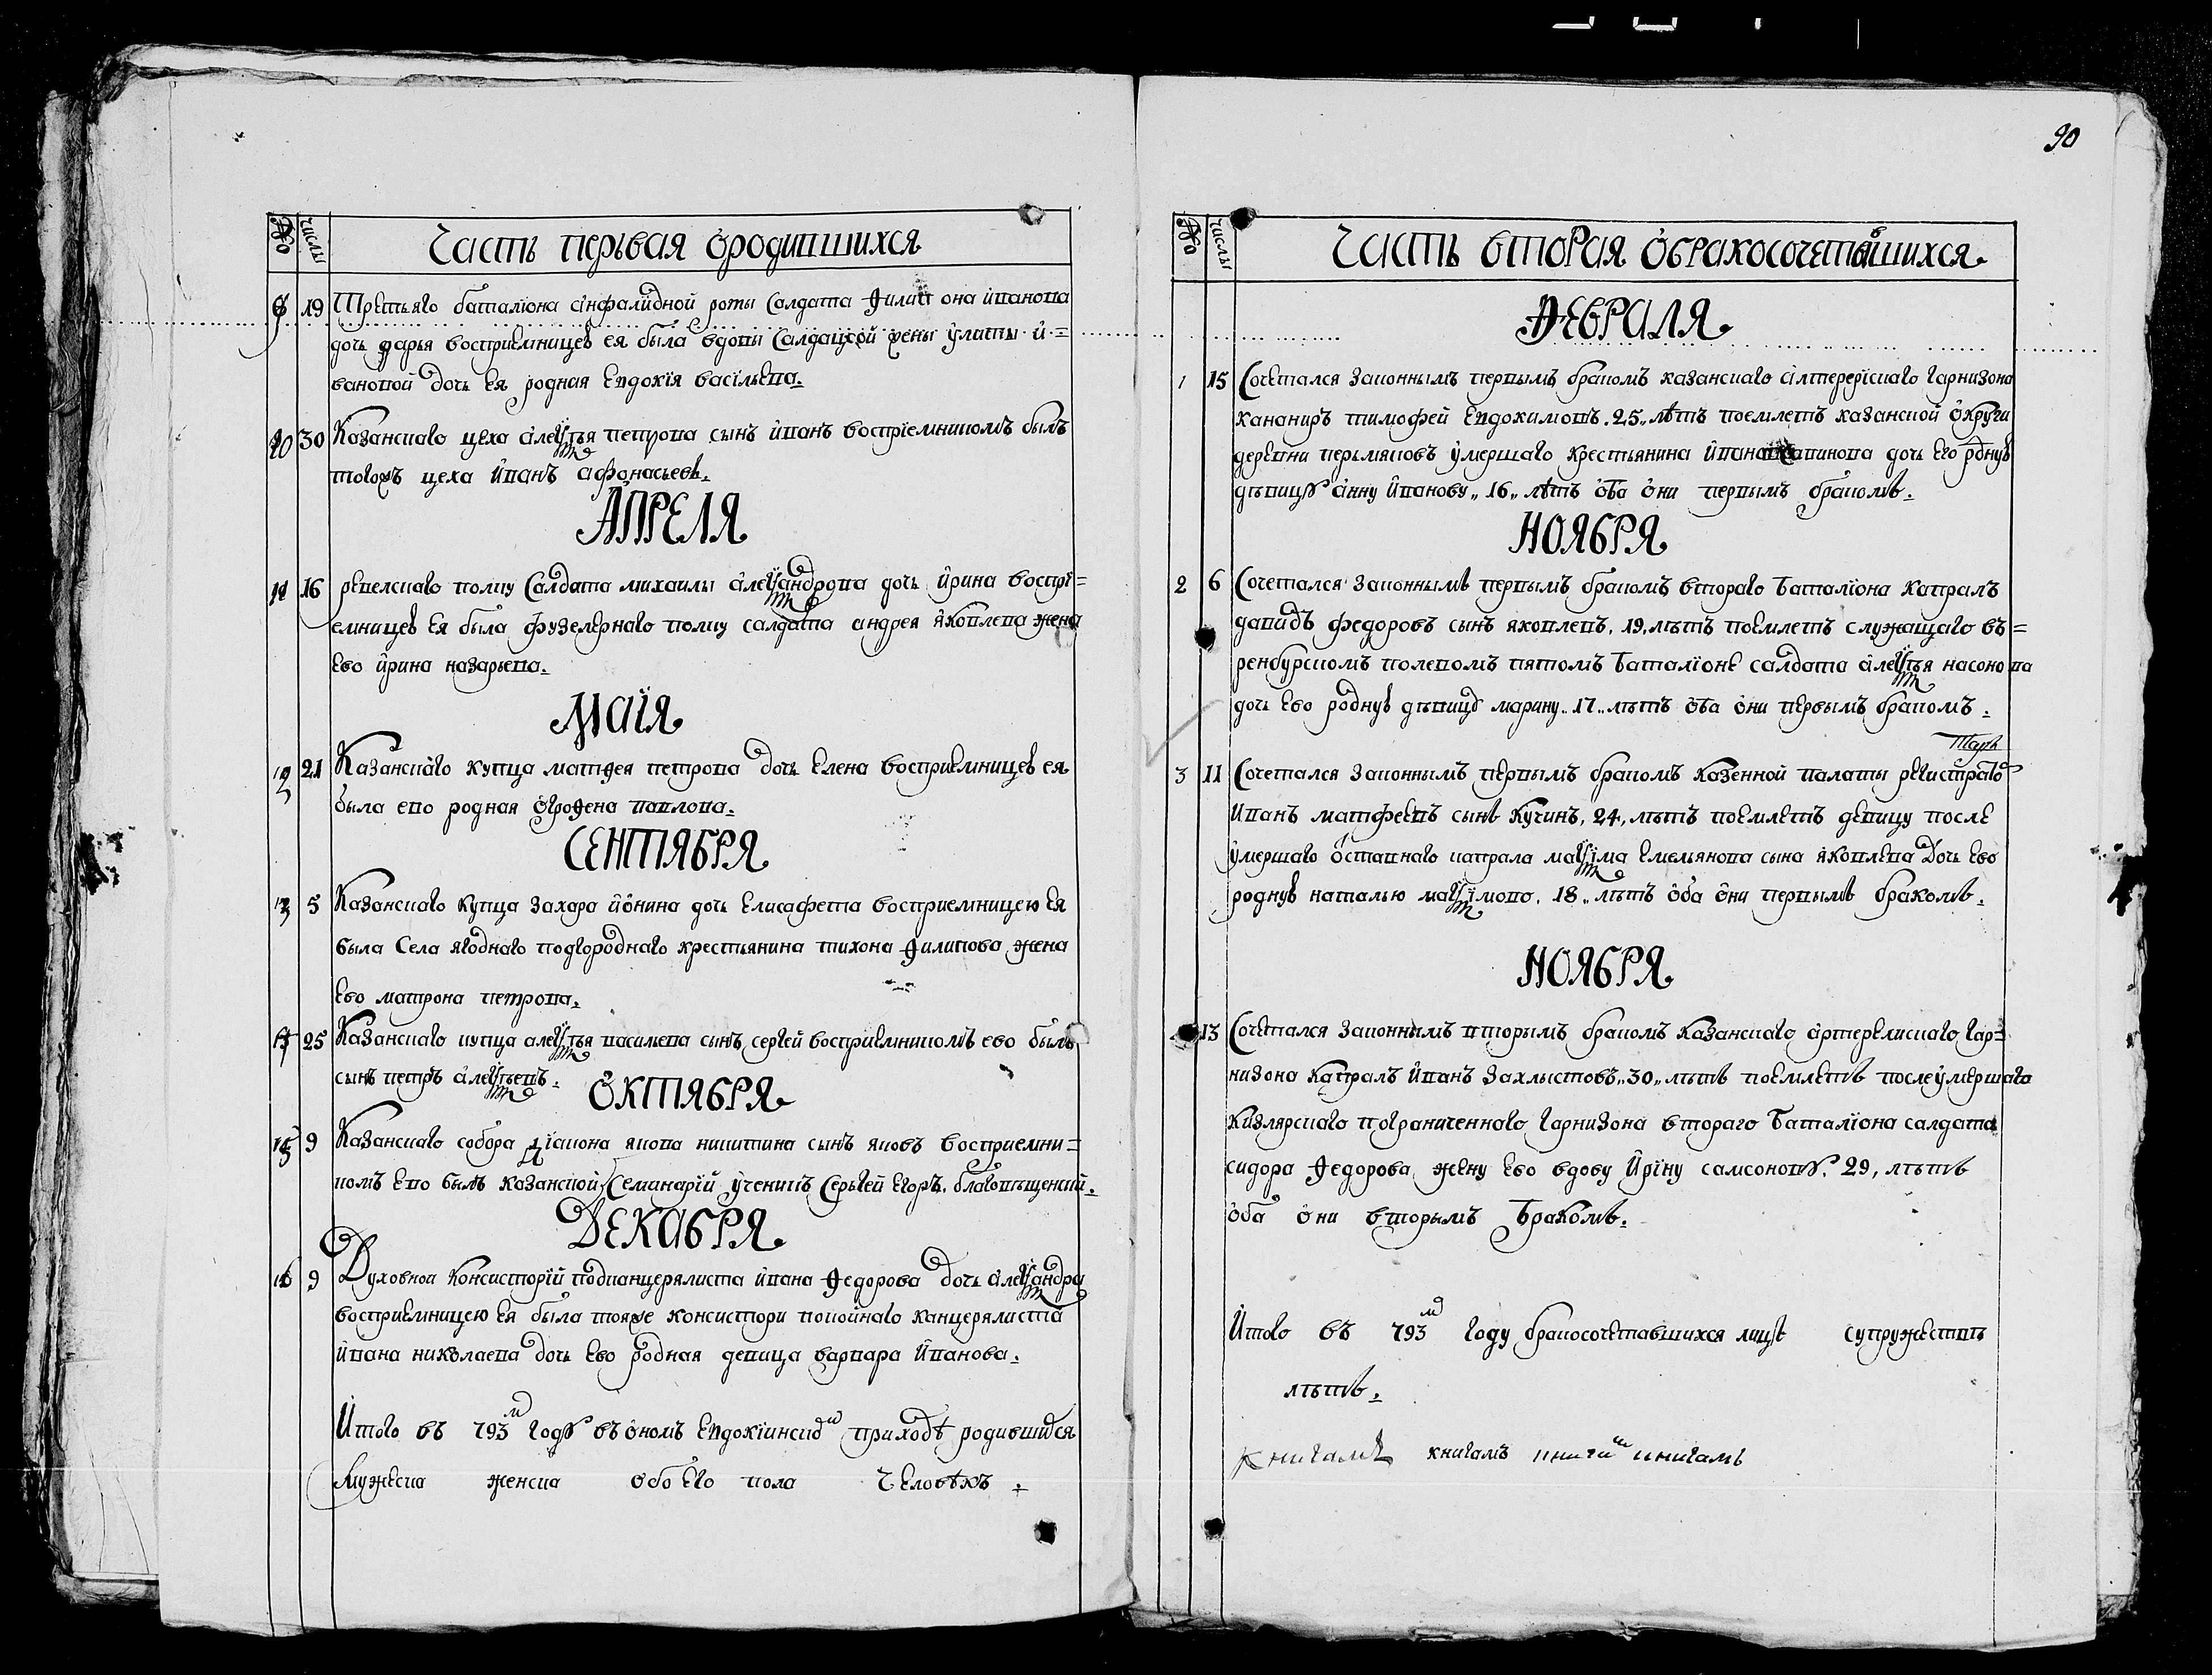 90
№ числы Часть первая ородившихся
9 19 Третьяго баталіона синфалидной роты Салдата Филипона иванова
дочь дарья восприемницею ея была вдовы Салдацкой жены улиты и=
вановой дочь ея родная Евдокія васільева.
10 30 Казанскаго цеха алеѯѣя петрова сынъ иванъ воспріемникомъ былъ
тогожъ цеха иванъ афонасьевъ.
АПРЕЛЯ
11 16 ревелскаго полку Салдата михаилы алеѯандрова дочь ирина воспрі=
емницею ея была фузелернаго полку салдата андрея яковлева жена
Ево ирина назарьева.
МАІЯ
12 21 Казанскаго купца матѳея петрова дочь Елена восприемницею ея
была ево родная огрофена павлова.
СЕНТЯБРЯ
13 5 Казанскаго купца Захара іонина дочь Елисафета восприемницею Ея
была Села ягоднаго подгороднаго крестьянина тихона Филипова жена
Ево матрона петрова.
14 25 Казанскаго купца алеѯѣя васильева сынъ сергей восприемникомъ ево былъ
сынъ петръ алеѯѣевъ.
ОКТЯБРЯ
15 9 Казанскаго собора діакона якова никитина сынъ яковъ восприемни=
комъ Ево былъ казанской Семинарій ученикъ Серьгей Егоръ. благовѣщенский.
ДЕКАБРЯ
16 9 Духовной Консисторій подканцерялиста ивана Федорова дочь алеѯандра
восприемницею Ея была тояже консистори покойнаго канцерялиста
ивана николаева дочь Ево родная девица варвара иванова.
Итого въ 793м году въ ономъ Евдокіинском приходѣ родившихся
мужеска женска обоего пола человѣкъ.
№ числы ЧАСТЬ ВТОРАЯ ОБРАКОСОЧЕТАВШИХСЯ
ФЕВРАЛЯ
1 15 Сочетался Законнымъ первымъ бракомъ казанскаго алтерерискаго гарнизона
кананиръ тимофей Евдокимовъ. 25 лѣтъ поемлетъ казанской округи
деревни перьмяковъ умершаго крестьянина ивана дочь Его родную
дѣвицу анну иванову 16 лѣтъ оба они первымъ бракомъ.
НОЯБРЯ
2 6 Сочетался Законнымъ первымъ бракомъ втораго баталіона Капралъ
давидъ федоровъ сынъ яковлевъ, 19, лѣтъ поемлетъ служащаго въ=
ренбурскомъ полевомъ пятомъ баталіоне салдата алеѯѣя насонова
дочь Ево родную дѣвицу марину 17 лѣтъ оба они первымъ бракомъ.
3 11 Сочетался Законнымъ первымъ бракомъ казенной палаты регистрато
Иванъ матфеевъ сынъ Кучинъ, 24, лѣтъ поемлетъ девицу после
умершаго оставнаго капрала маѯима Емельянова сына яковлева Дочь Ево
родную наталью маѯимово, 18 лѣтъ оба они первымъ бракомъ.
НОЯБРЯ
13 Сочетался Законнымъ вторымъ бракомъ Казанскаго артерелискаго гар=
низона Капралъ Иванъ Захлыстовъ 30 лѣтъ поемлетъ после умершаго
Кизлярскаго пограниченнаго гарнизона втораго баталіона салдата
сидора Федорова жену Ево вдову Ирину самсонову. 29, лѣтъ
оба они вторымъ браКомъ.
Итого въ 793м году бракосочетавшихся лицъ супружествъ
лѣтъ.
книгамъ книгамъ книгамъ